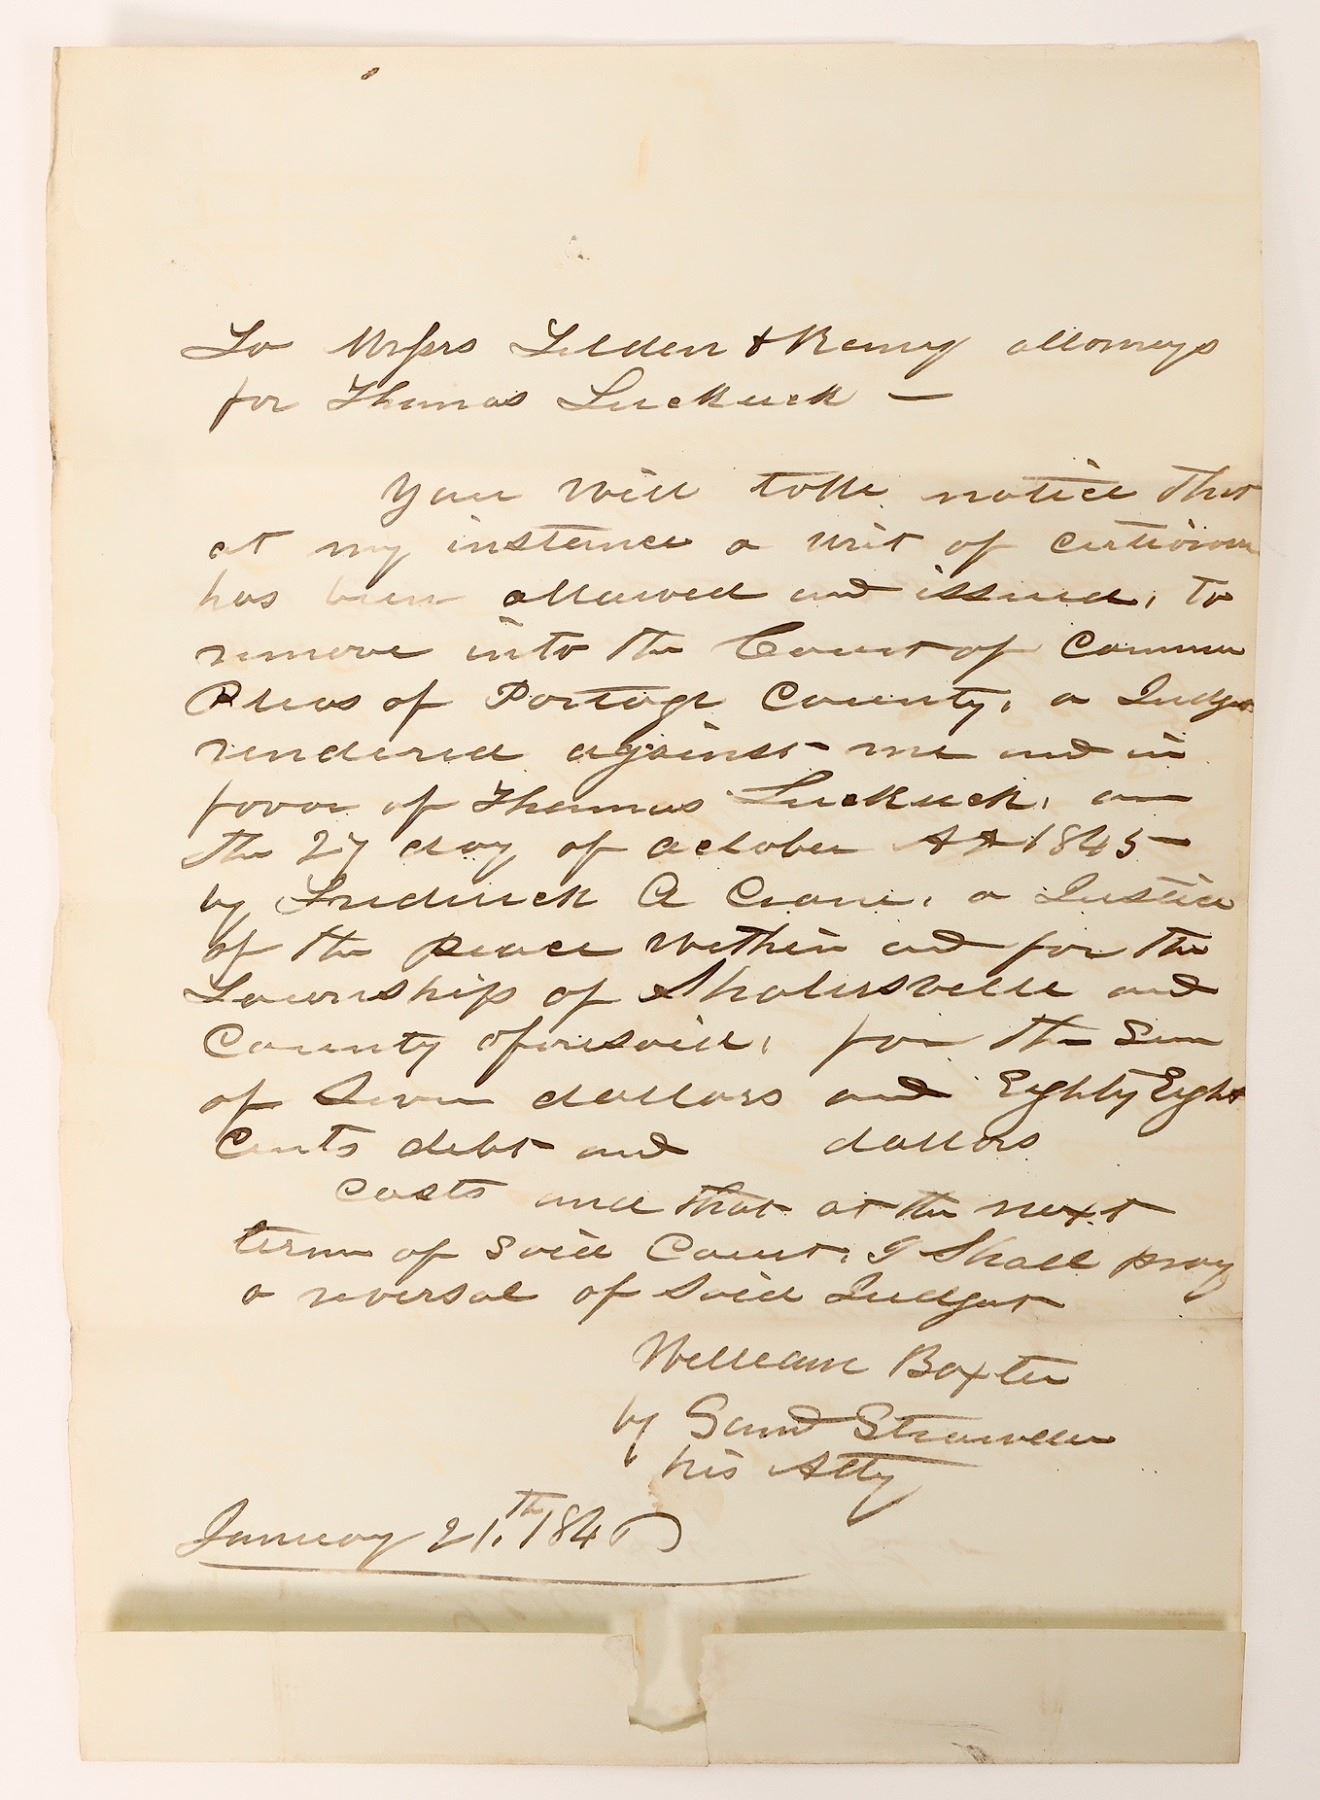 To Messrs Tilden & Ranney attorneys
for Thomas Luckuck —
You will take notice that
at my instance a writ of certiorari
has been allowed and issued, to
remove into the Court of Common
Pleas of Portage County, a Judgt
rendered against me and in
favor of Thomas Luckuck, on
the 27 day of october AD 1845—
by Frederick A Crane, a Justice
of the peace within and for the
Township of Shalersville and
County aforesaid, for the Sum
of Seven dollars and Eighty Eight
Cents debt and dollars
costs and that at the next
term of Said Court, I Shall pray
a reversal of Said Judgmt
William Baxter
by Saml Strawder
his Atty
January 21.th 1846